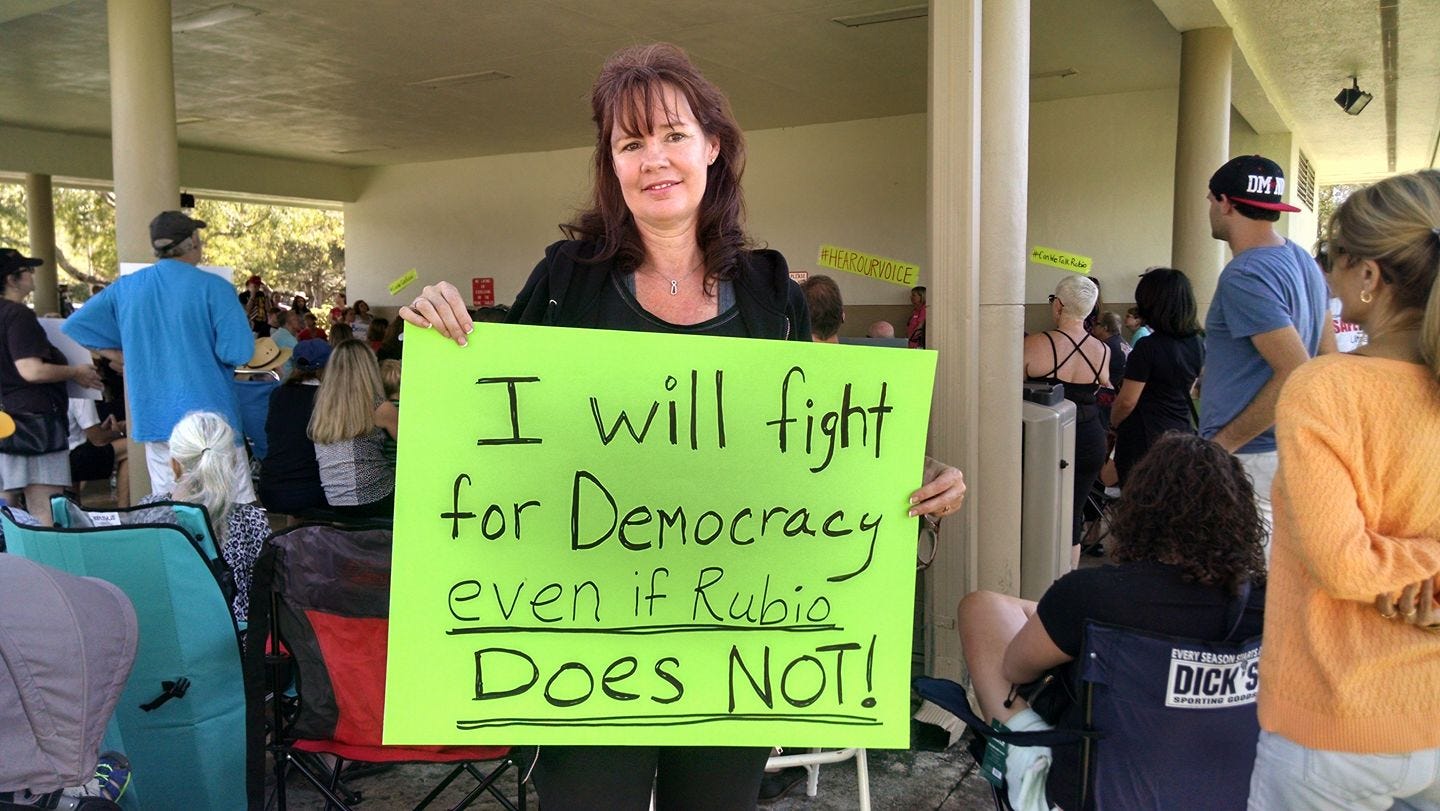 #HEAROURVOICE
#CanWeTalkRubio
DM
I will fight
for Democracy
even if Rubio
DOES NOT!
EVERY SEASON STARTS
DICK'S
SPORTING GOODS